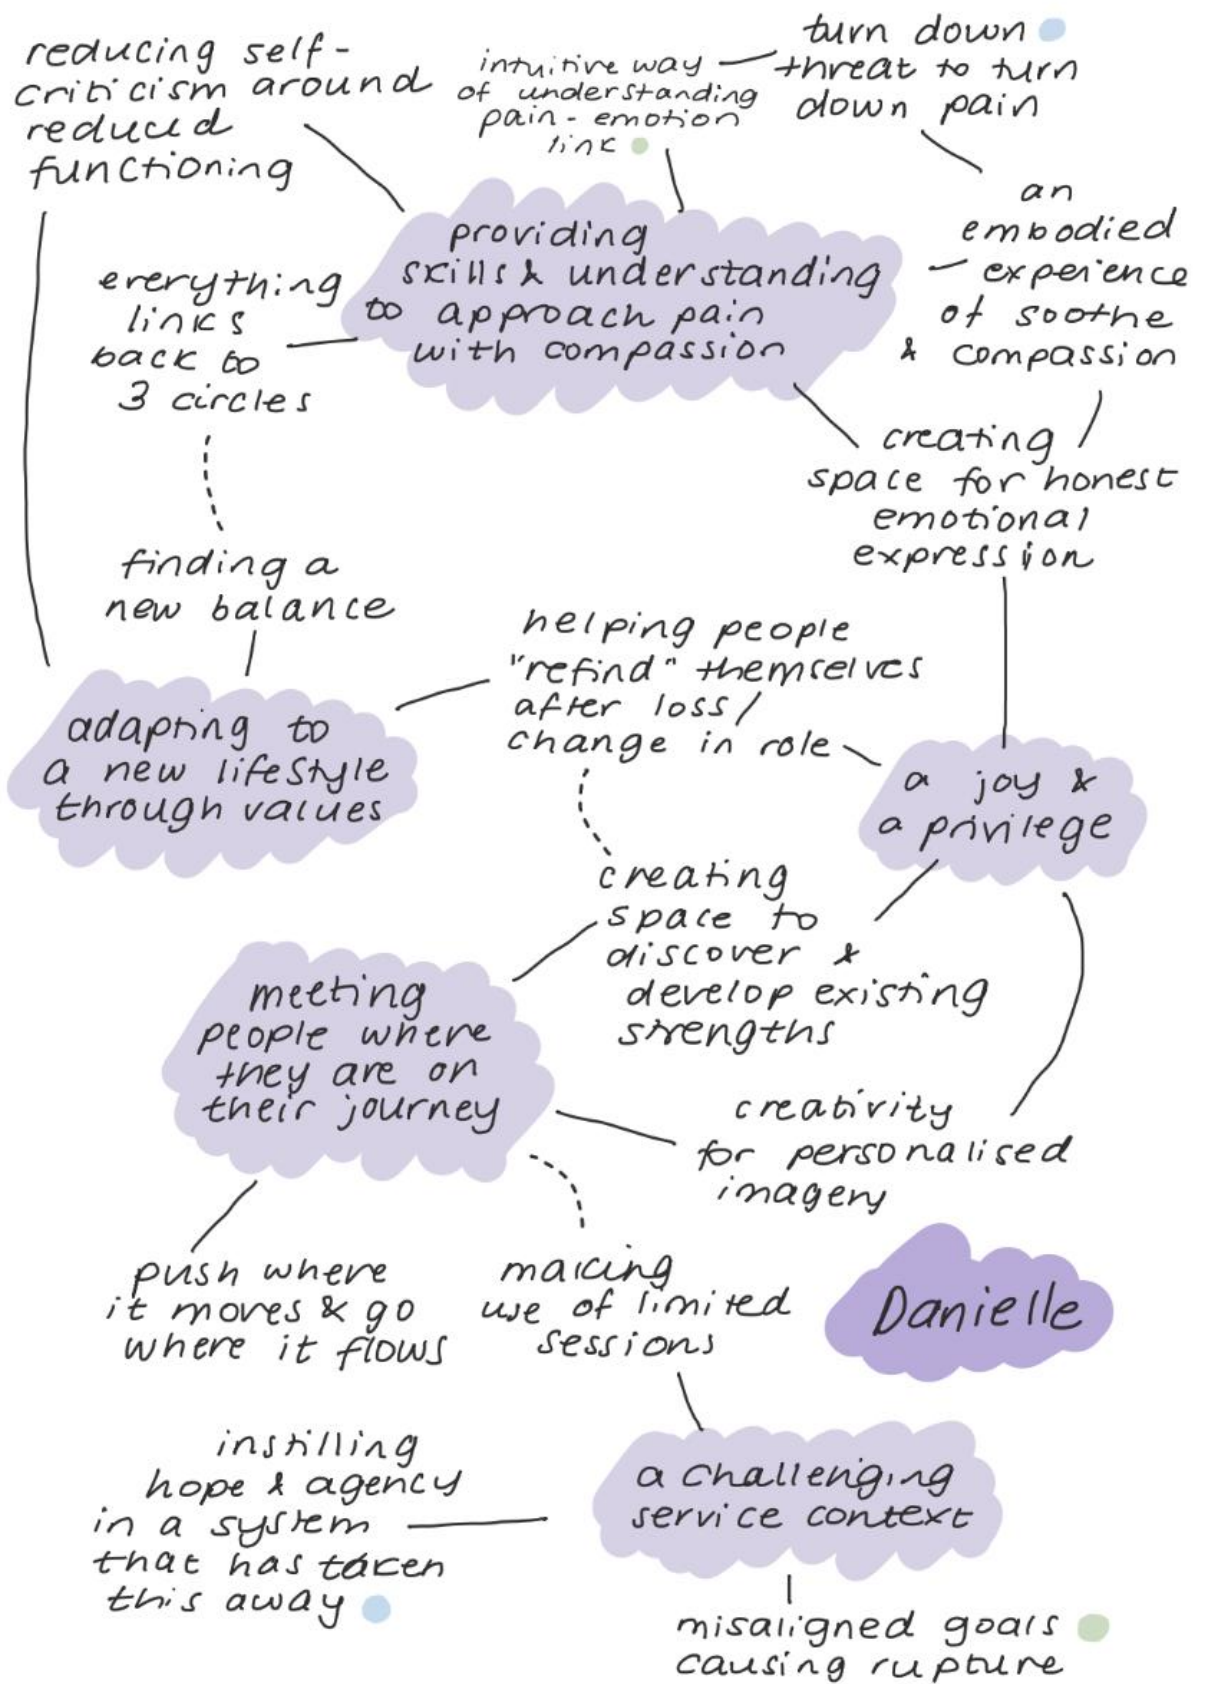 reducing self-
criticism around
reduced
functioning
intuitive way
of understanding
pain-emotion
link
turn down
threat to turn
down pain
an
embodied
experience
of soothe
& compassion
providing
skills & understanding
to approach pain
with compassion
everything
links
back to
3 circles
creating
space for honest
emotional
expression
finding a
new balance
helping people
"refind" themselves
after loss/
change in role
adapting to
a new lifestyle
through values
a joy &
a privilege
creating
space to
discover &
develop existing
strengths
meeting
people where
they are on
their journey
creativity
for personalised
imagery
push where
it moves & go
where it flows
making
use of limited
sessions
Danielle
instilling
hope & agency
in a system
that has taken
this away
a challenging
service context
misaligned goals
causing rupture